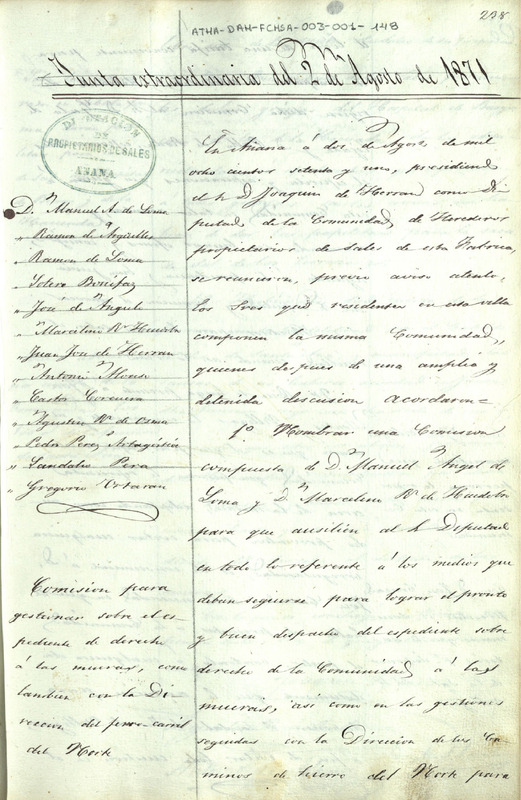 238
ATHA-DAH-FCHSA-003-001-148
Junta extraordinaria del 2 de Agosto de 1871
DIPUTACION
DE
PROPIETARIOS DE SALES
AÑANA
D.n Manuel A. de Loma
" Ramon de Argüelles
" Ramon de Loma
" Sotero Bonifaz
" José de Angulo
" Marcelino R. de Huidobro
" Juan José de Herran
" Antonio Alonso
" Castor Corcuera
" Agustin R. de Osma
" Pedro Perez
" Sandalio Pera
" Gregorio Ortaran
Comision para
gestionar sobre el es-
pediente de derecho
á las mueras, como
tambien con la Di
reccion del ferro-carril
del Norte
En Añana á dos de Agosto de mil
ocho cientos setenta y uno, presidiendo
el S. D. Joaquin de Herran como Di
putado de la Comunidad de Herederos
propietarios de Sales de esta Fabrica,
se reunieron, previo aviso atento,
los Sres que residentes en esta villa
componen la misma Comunidad,
quienes despues de una amplia y
detenida discusion acordaron=
1º Nombrar una Comision
compuesta de D.n Manuel Angel de
Loma y D.n Marcelino R. de Huidobro
para que ausilien al S. Diputado
en todo lo referente á los medios que
deban seguirse para lograr el pronto
y buen despacho del espediente sobre
derecho de la Comunidad á las
mueras, asi como en las gestiones
seguidas con la Direccion de los Ca-
minos de hierro del Norte para